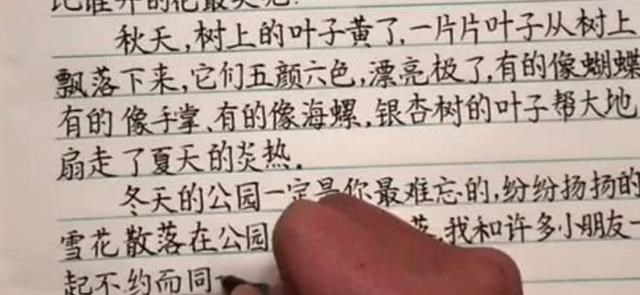 比谁开的花最美呢
秋天,树上的叶子黄了,一片片叶子从树上
飘落下来,它们五颜六色,漂亮极了,有的像蝴蝶
有的像手掌、有的像海螺,银杏树的叶子帮大地
扇走了夏天的炎热.
冬天的公园一定是你最难忘的,纷纷扬扬的
雪花散落在公园 落,我和许多小朋友一
起不约而同